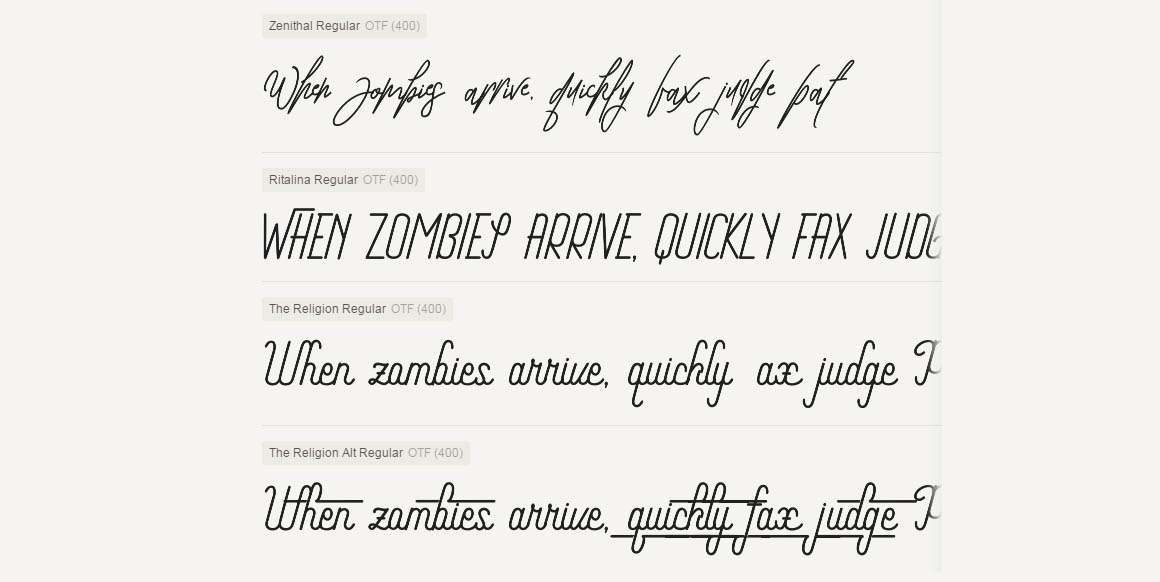 Zenithal Regular OTF (400)
When zombies arrive, quickly fax judge pat
Ritalina Regular OTF (400)
WHEN ZOMBIES ARRIVE, QUICKLY FAX JUDG
The Religion Regular OTF (400)
When zombies arrive, quickly ax judge P
The Religion Alt Regular OTF (400)
When zombies arrive, quickly fax judge P